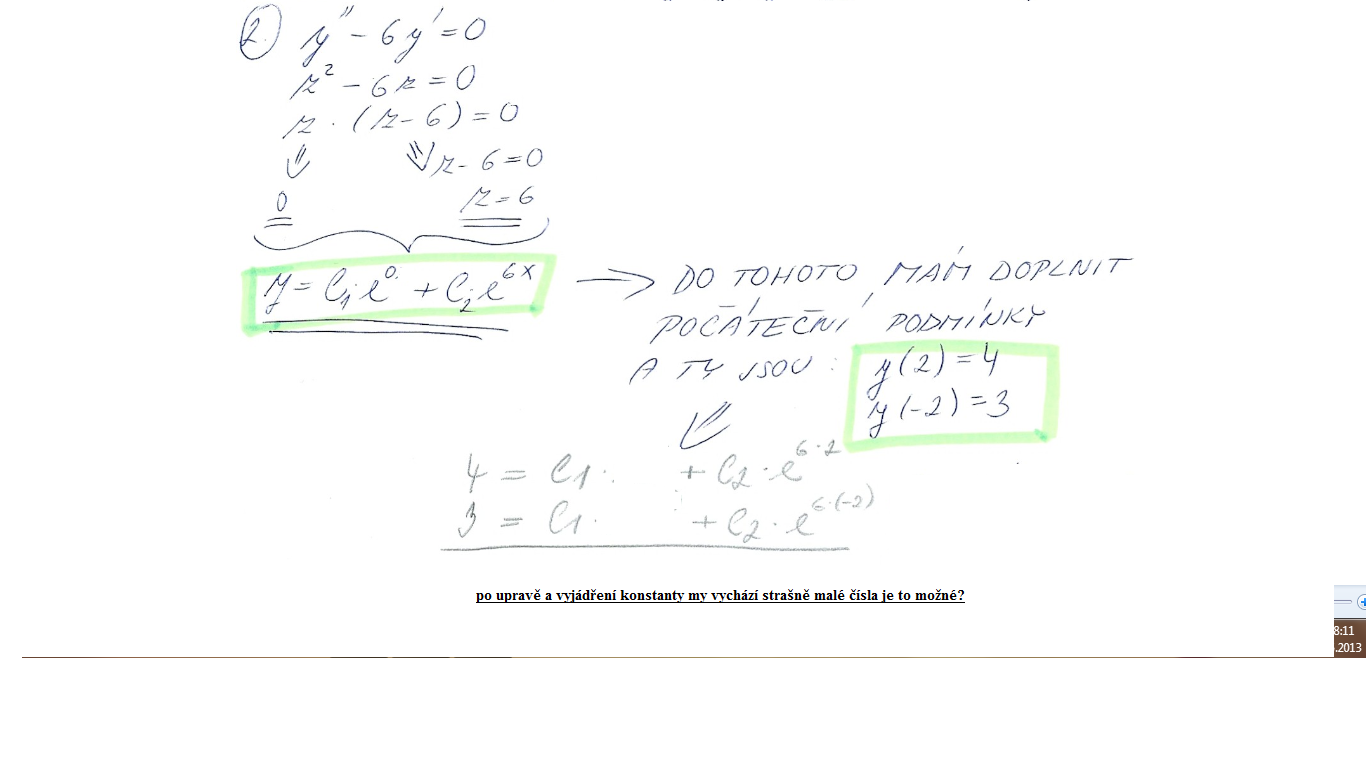 2. y'' - 6y' = 0
r² - 6r = 0
r · (r - 6) = 0
r - 6 = 0
0 r = 6
y = C₁·e⁰· + C₂·e⁶ˣ → DO TOHOTO MÁM DOPLNIT
POČÁTEČNÍ PODMÍNKY
A TY JSOU: y(2) = 4
y(-2) = 3
4 = C1· + C2·e^6·2
3 = C1· + C2·e^6·(-2)
po upravě a vyjádření konstanty my vychází strašně malé čísla je to možné?
8:11
.2013